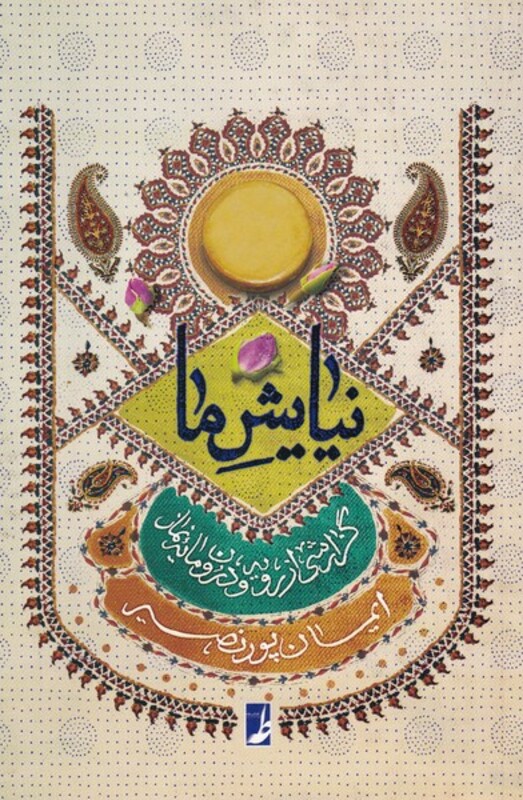 نیایشِ ما
گزارشی از رویه و درون‌مایهٔ نماز
ایمان پورنصیر
طه